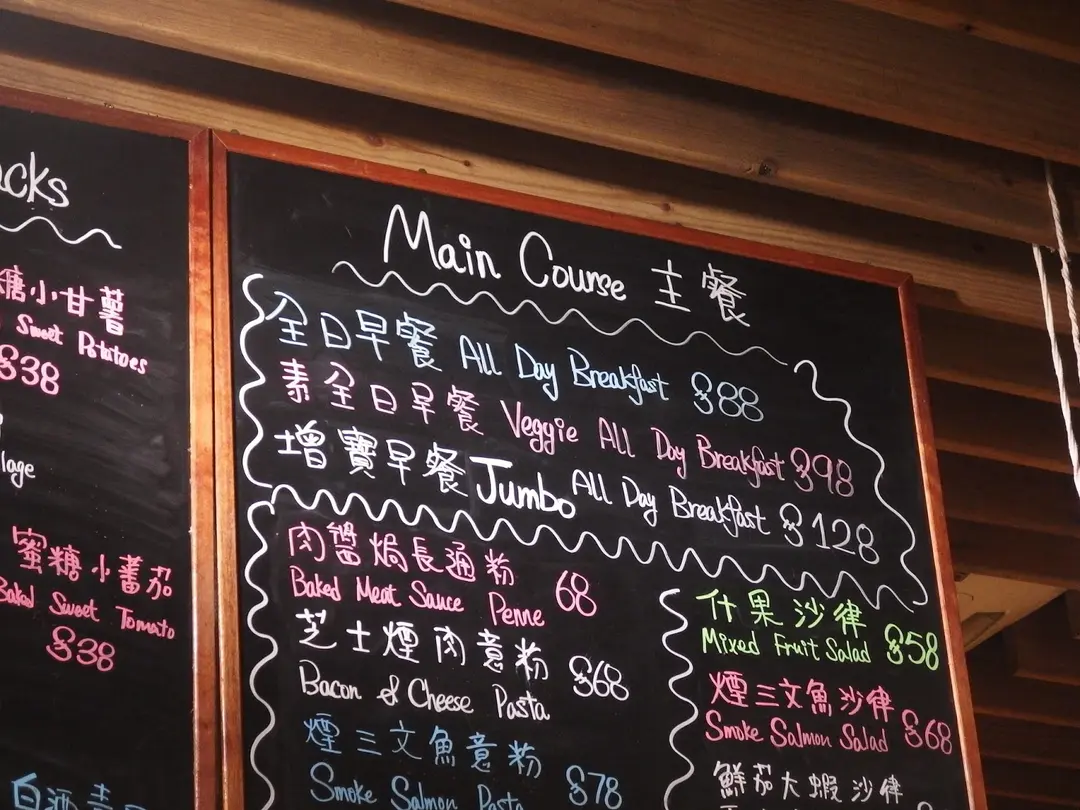 糖小甘薯
Sweet Potatoes
$38
蜜糖小蕃茄
Baked Sweet Tomato
$38
Main Course 主餐
全日早餐 All Day Breakfast $88
素全日早餐 Veggie All Day Breakfast $98
增寶早餐 Jumbo All Day Breakfast $128
肉醬焗長通粉 68
Baked Meat Sauce Penne
芝士煙肉意粉 $68
Bacon & Cheese Pasta
煙三文魚意粉
Smoke Salmon Pasta $78
什果沙律
Mixed Fruit Salad $58
煙三文魚沙律
Smoke Salmon Salad $68
鮮茄大蝦沙律